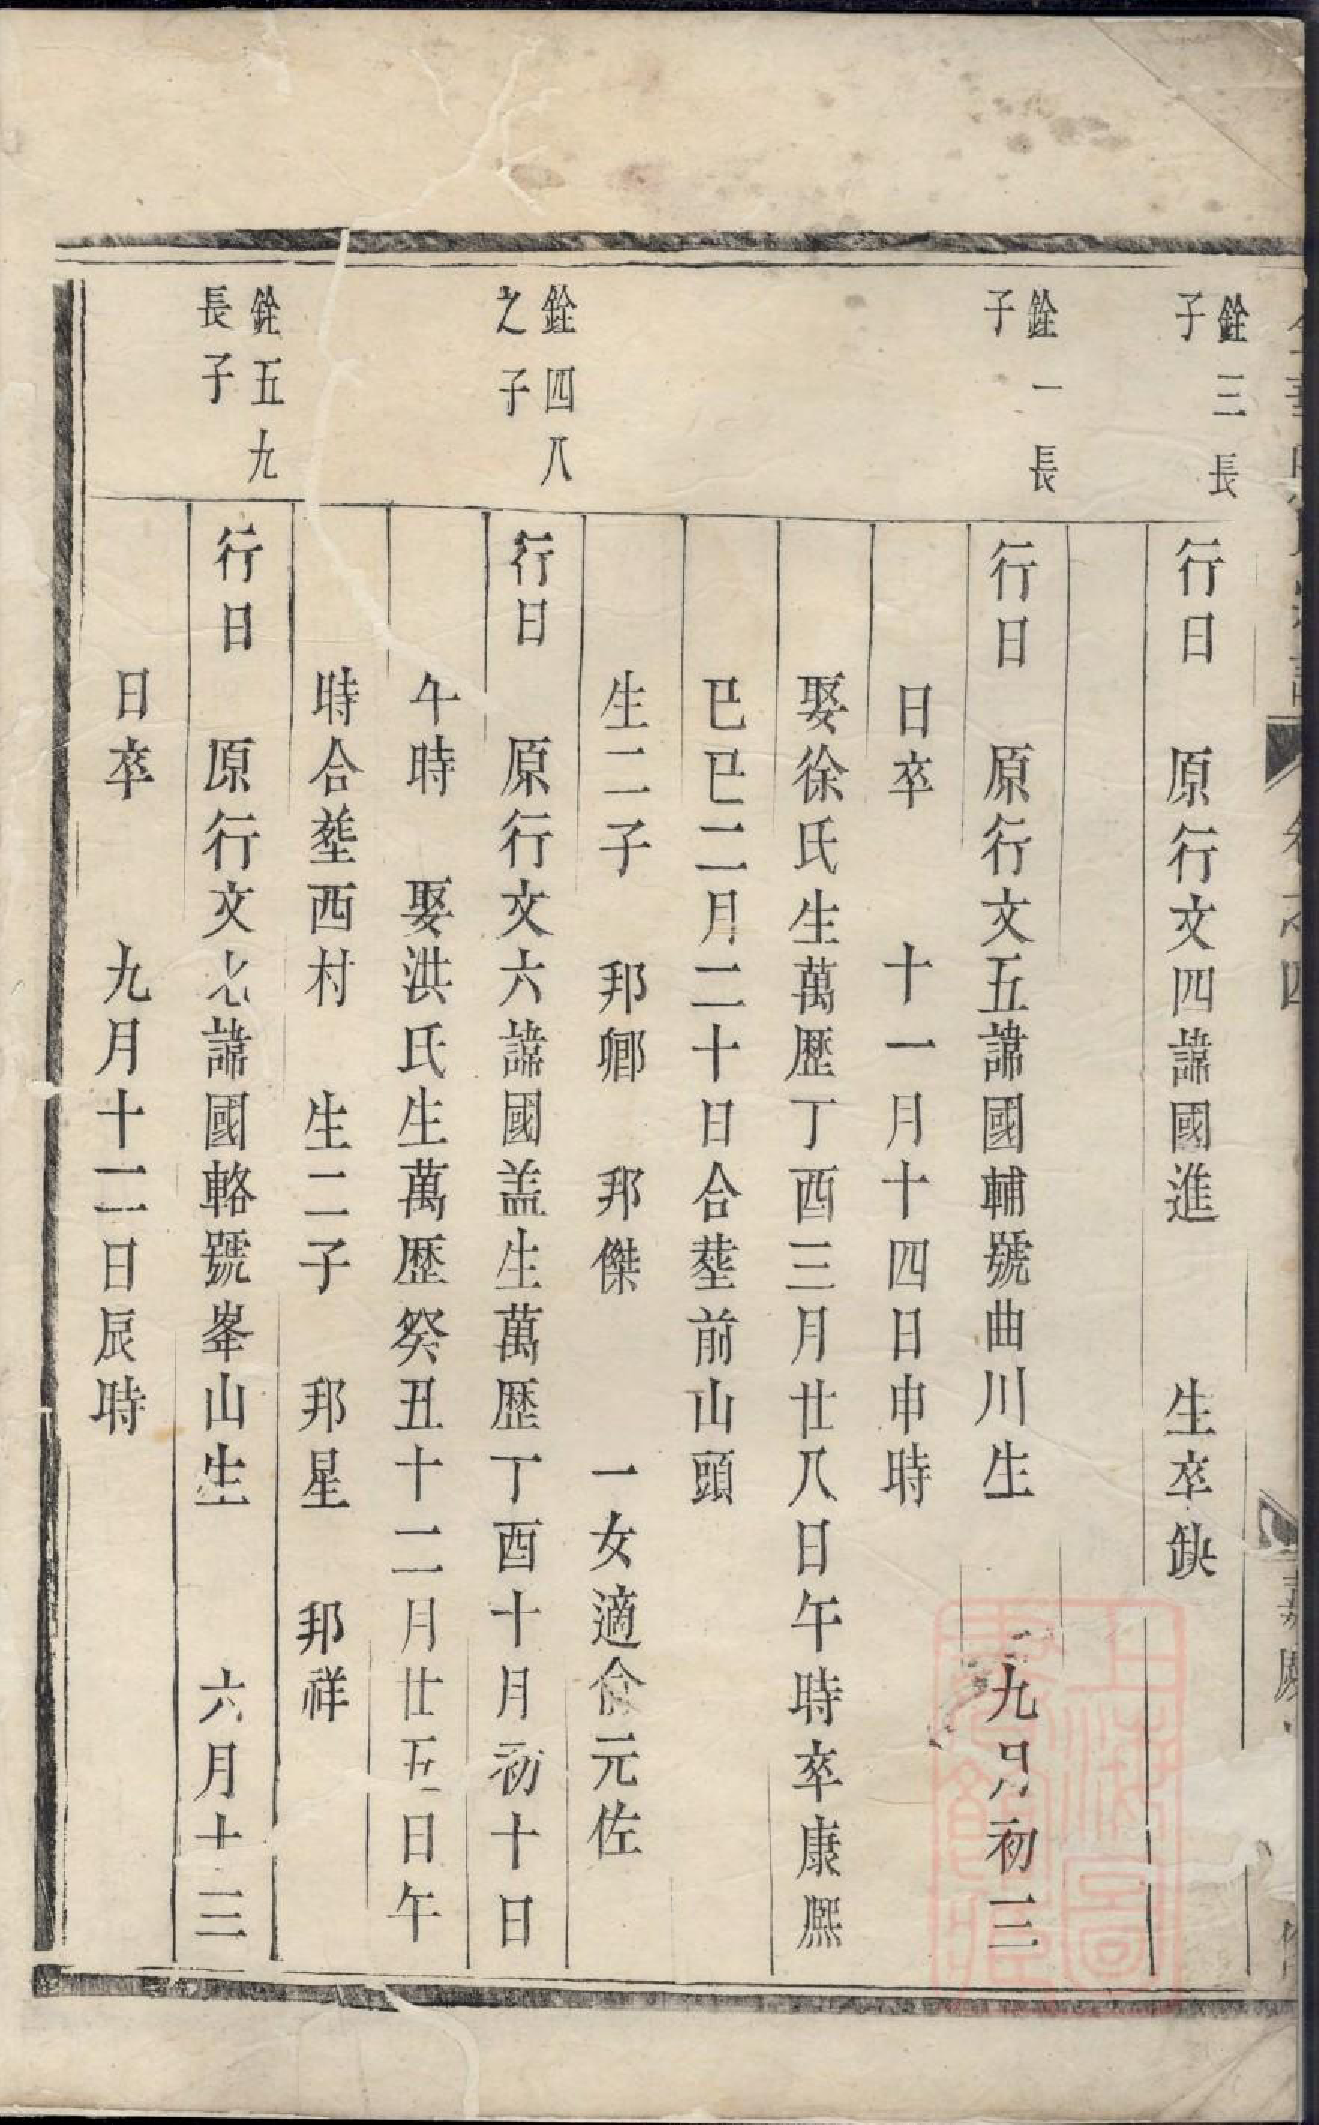 卷之四
銓三長
子
行日 原行文四諱國進 生卒缺
銓一長
子
行日 原行文五諱國輔號曲川生 九月初三
日卒 十一月十四日申時
娶徐氏生萬歷丁酉三月廿八日午時卒康熈
已巳二月二十日合塟前山頭
生二子 邦卿 邦傑 一女適俞元佐
銓四八
之子
行日 原行文六諱國盖生萬歷丁酉十月初十日
午時 娶洪氏生萬歷癸丑十二月廿五日午
時合塟西村 生二子 邦星 邦祥
銓五九
長子
行日 原行文 諱國輅號峯山生 六月十三
日卒 九月十二日辰時